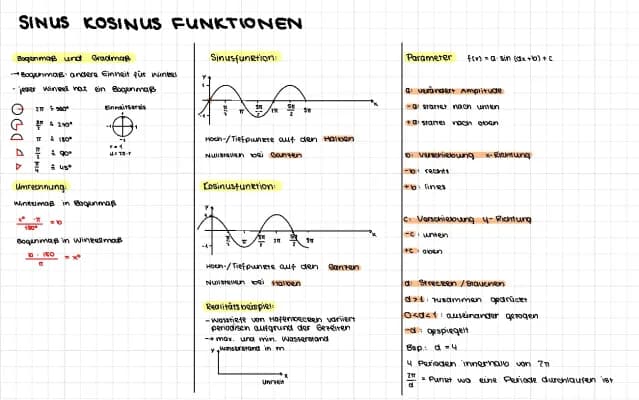 SINUS KOSINUS FUNKTIONEN
Bogenmaß und Gradmaß
→ Bogenmaß: andere Einheit für Winkel
- jeder Winkel hat ein Bogenmaß
2π ≙ 360°
Einheitskreis
3π/2 ≙ 270°
π ≙ 180°
π/2 ≙ 90°
r = 1
π/4 ≙ 45°
Umrechnung:
Winkelmaß in Bogenmaß
x° · π / 180° = b
Bogenmaß in Winkelmaß
b · 180 / π = x°
Sinusfunktion:
Hoch-/Tiefpunkte auf den Halben
Nullstellen bei Ganzen
Kosinusfunktion:
Hoch-/Tiefpunkte auf den Ganzen
Nullstellen bei Halben
Realitätsbeispiel:
- Wassertiefe von Hafenbecken variiert
periodisch aufgrund der Gezeiten
→ max. und min. Wasserstand
y Wasserstand in m
x
Uhrzeit
Parameter f(x) = a · sin (dx+b) + c
a: verändert Amplitude
-a: startet nach unten
+a: startet nach oben
b: Verschiebung x-Richtung
-b: rechts
+b: links
c: Verschiebung y-Richtung
-c: unten
+c: oben
d: Strecken / Stauchen
d>1: zusammen gedrückt
0<d<1: auseinander gezogen
-d: gespiegelt
Bsp.: d = 4
4 Perioden innerhalb von 2π
2π/d = Punkt wo eine Periode durchlaufen ist